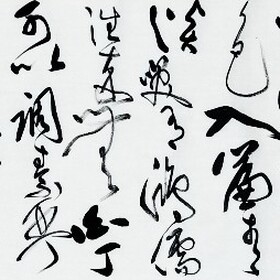 色入簾青
談笑有鴻儒
往來無白丁
可以調素琴